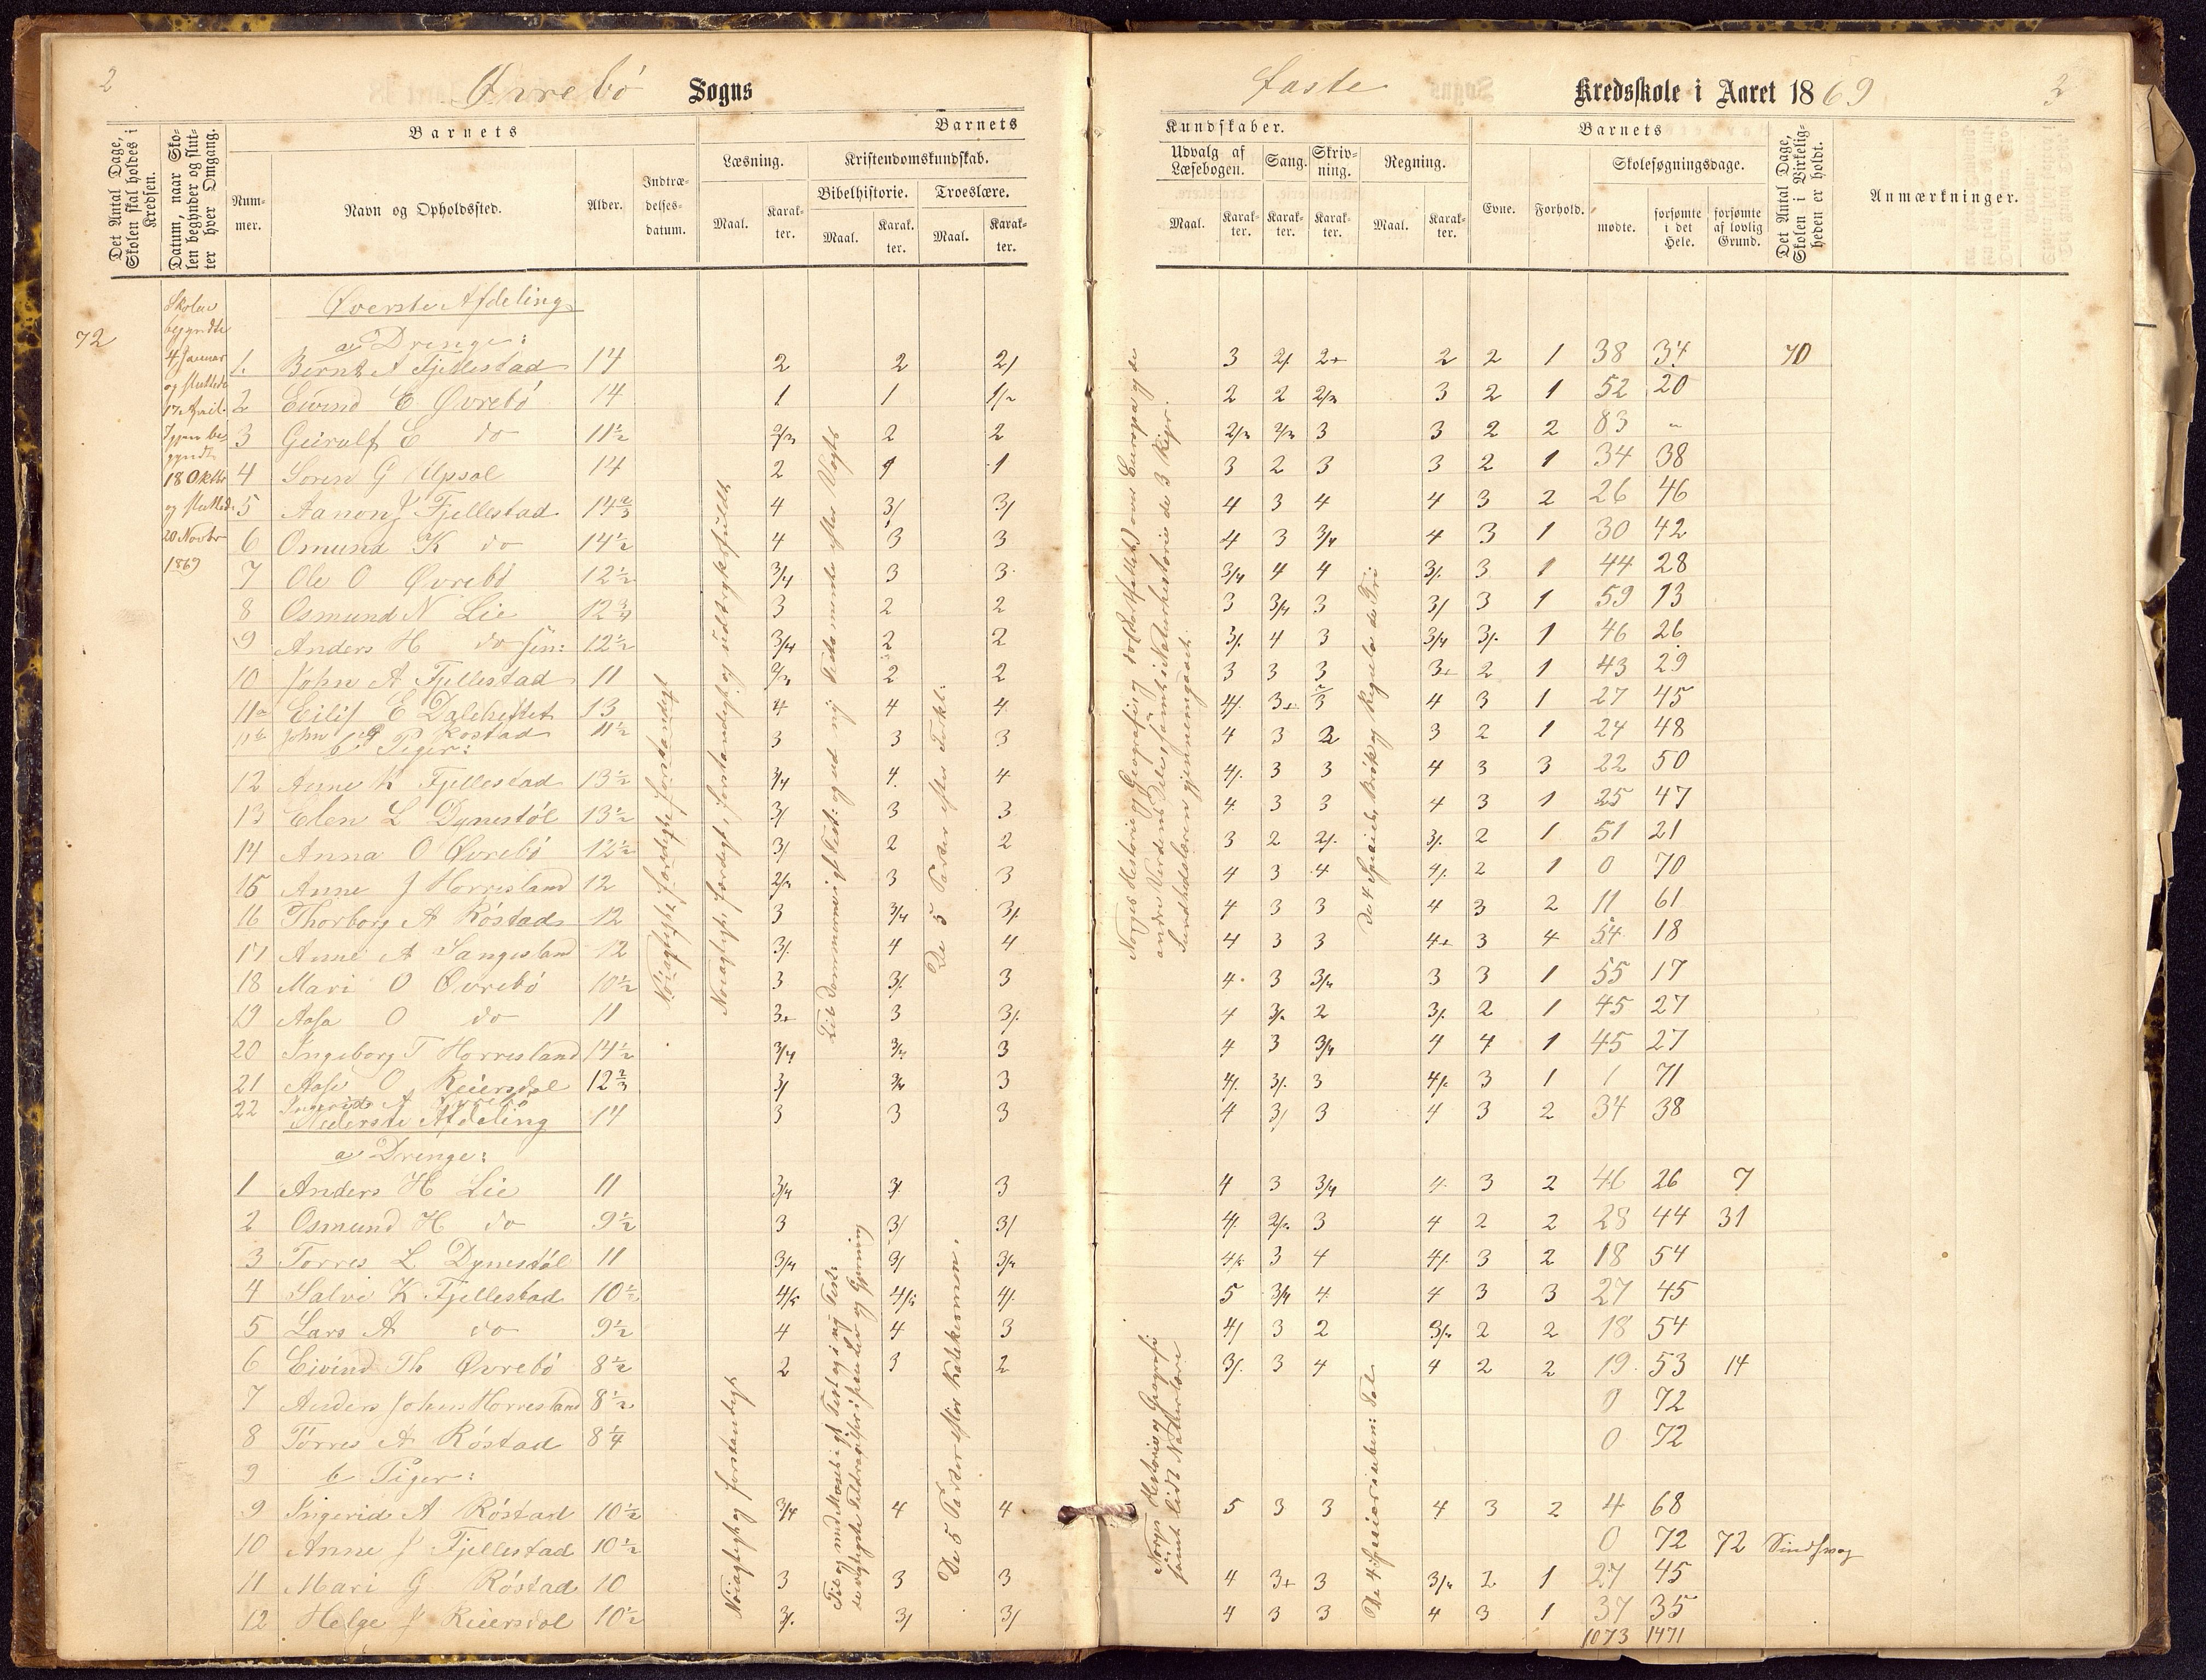 2
Øvrebö Sogns
Det Antal Dage, Skolen skal holdes i Kredsen.
Datum, naar Skolen begynder og slutter hver Omgang.
Nummer.
Barnets
Navn og Opholdssted.
Alder.
Indtrædelsesdatum.
Barnets
Læsning.
Maal.
Karakter.
Kristendomskundskab.
Bibelhistorie.
Maal.
Karakter.
Troeslære.
Maal.
Karakter.
faste Kredsskole i Aaret 1869
3
Kundskaber.
Udvalg af Læsebogen.
Maal.
Karakter.
Sang.
Karakter.
Skrivning.
Karakter.
Regning.
Maal.
Karakter.
Barnets
Evne.
Forhold.
Skolesøgningsdage.
mødte.
forsømte i det Hele.
forsømte af lovlig Grund.
Det Antal Dage, Skolen i Virkeligheden er holdt.
Anmærkninger.
72
Skolen
begyndte
4 Januar
og sluttede
17 April.
Igjen be-
gyndt
18 Oktbr
og sluttede
20 Novbr
1869
Øverste Afdeling
a) Drenge:
1. Bernt A Fjellestad 14 2 2 2/ 3 2/. 2+ 2 2 1 38 34 70
2 Eivind E Øvrebö 14 1 1 1/2 2 2 2/3 3 2 1 52 20
3 Geirulf E do 11½ 2/3 2 2 2/3 2/3 3 3 2 2 83 "
4 Sören G Upsal 14 2 1 1 3 2 3 3 2 1 34 38
5 Aanon J Fjellestad 14⅔ 4 3/ 3/ 4 3 4 4 3 2 26 46
6 Osmund K do 14½ 4 3 3 4 3 3/4 4 3 1 30 42
7 Ole O Øvrebö 12½ 3/4 3 3 3/4 4 4 3/. 3 1 44 28
8 Osmund N Lie 12¾ 3 2 2 3 3/4 3 3/ 3 1 59 13
9 Anders H do sen: 12½ 3/4 2 2 3/. 4 3 3/4 3/. 1 46 26
10 John A Fjellestad 11 2/3 2 2 3 3 3 3+ 2 1 43 29
11a Eilif E Daleheftet 13 4 4 4 4/. 3+ 3 4 3 1 27 45
11b John G Röstad 11½ 3 3 3 4 3 2 3 2 1 24 48
b) Piger:
12 Anne K Fjellestad 13½ 3/4 4 4 4/. 3 3 4 3 3 22 50
13 Elen L Dynestöl 13½ 3/ 3 3 4 3 3 4 3 1 25 47
14 Anna O Øvrebö 12½ 3/ 2 2 3 2 2/. 3/. 2 1 51 21
15 Anne J Horresland 12 2/3 3 3 4 3 4 4/. 2 1 0 70
16 Thorborg A Röstad 12 3 3/4 3/. 4 3 3 4 3 2 11 61
17 Anne A Sangesland 12 3/. 4 4 4 3 3 4+ 3 4 54 18
18 Mari O Øvrebö 10½ 3 3/. 3 4 3 3/4 3 3 1 55 17
19 Aasa O do 11 3+ 3 3/. 4 3/4 2 3/. 2 1 45 27
20 Ingeborg T Horresland 14½ 3/4 3/4 3 4 3 3/4 4 4 1 45 27
21 Aase O Reiersdal 12⅔ 3/ 3/4 3 4/. 3/. 3 4/. 3 1 1 71
22 Ingerid A Øvrebö 14 3 3 3 4 3/ 3 4 3 2 34 38
Nederste Afdeling
a) Drenge:
1 Anders H Lie 11 3/4 3/ 3 4 3 3/4 4 3 2 46 26 7
2 Osmund H do 9½ 3 3/ 3/ 4/. 2/3 3 4 2 2 28 44 31
3 Torres L Dynestöl 11 3/4 3/ 3/4 4/5 3 4 4/. 3 2 18 54
4 Salve K Fjellestad 10½ 4/5 4/5 4/. 5 3/4 4 4 3 3 27 45
5 Lars A do 9½ 4 4 3 4/ 3 2 3/4 2 2 18 54
6 Eivind Th Øvrebö 8½ 2 3 2 3/. 3 4 4 2 2 19 53 14
7 Anders John Horresland 8½ 0 72
8 Törres A Röstad 8¼ 0 72
9 b Piger:
9 Ingerid A Röstad 10½ 3/4 4 4 5 3 3 4 3 2 4 68
10 Anne J Fjellestad 10½ 0 72 72 Sindsvag
11 Mari G Röstad 10 3 3 3 4 3+ 3 3/4 2 1 27 45
12 Helge J Reiersdal 10½ 3/. 3/ 3/ 4 3 3 4 3 1 37 35
1073 1471
Nöiagtight færdight forstandigt
Nöiagtight, færdigt, forstandigt og udtryksfuldt
Til Dommerne i gl Test: og ud ny Testamente efter Vogts
De 5 Parter efter Forkl:
Norges Historie og Geografi og over Europa og de
andre Verdens Dele samt i Naturhistorie de 3 Riger.
Sundhedslæren gjennemgaaet.
De 4 Species, Brök og Regula de Tri
Nöiagtigt og forstandigt
Til og med Moseb: i gl Test og i ny Test:
de vigtigste Tildragelser i Jesu Liv og Gjerning
De 5 Parter efter Katekismen.
Norges Historie og Geografi
samt lidt Naturlære
De 4 Species i uben: Tal